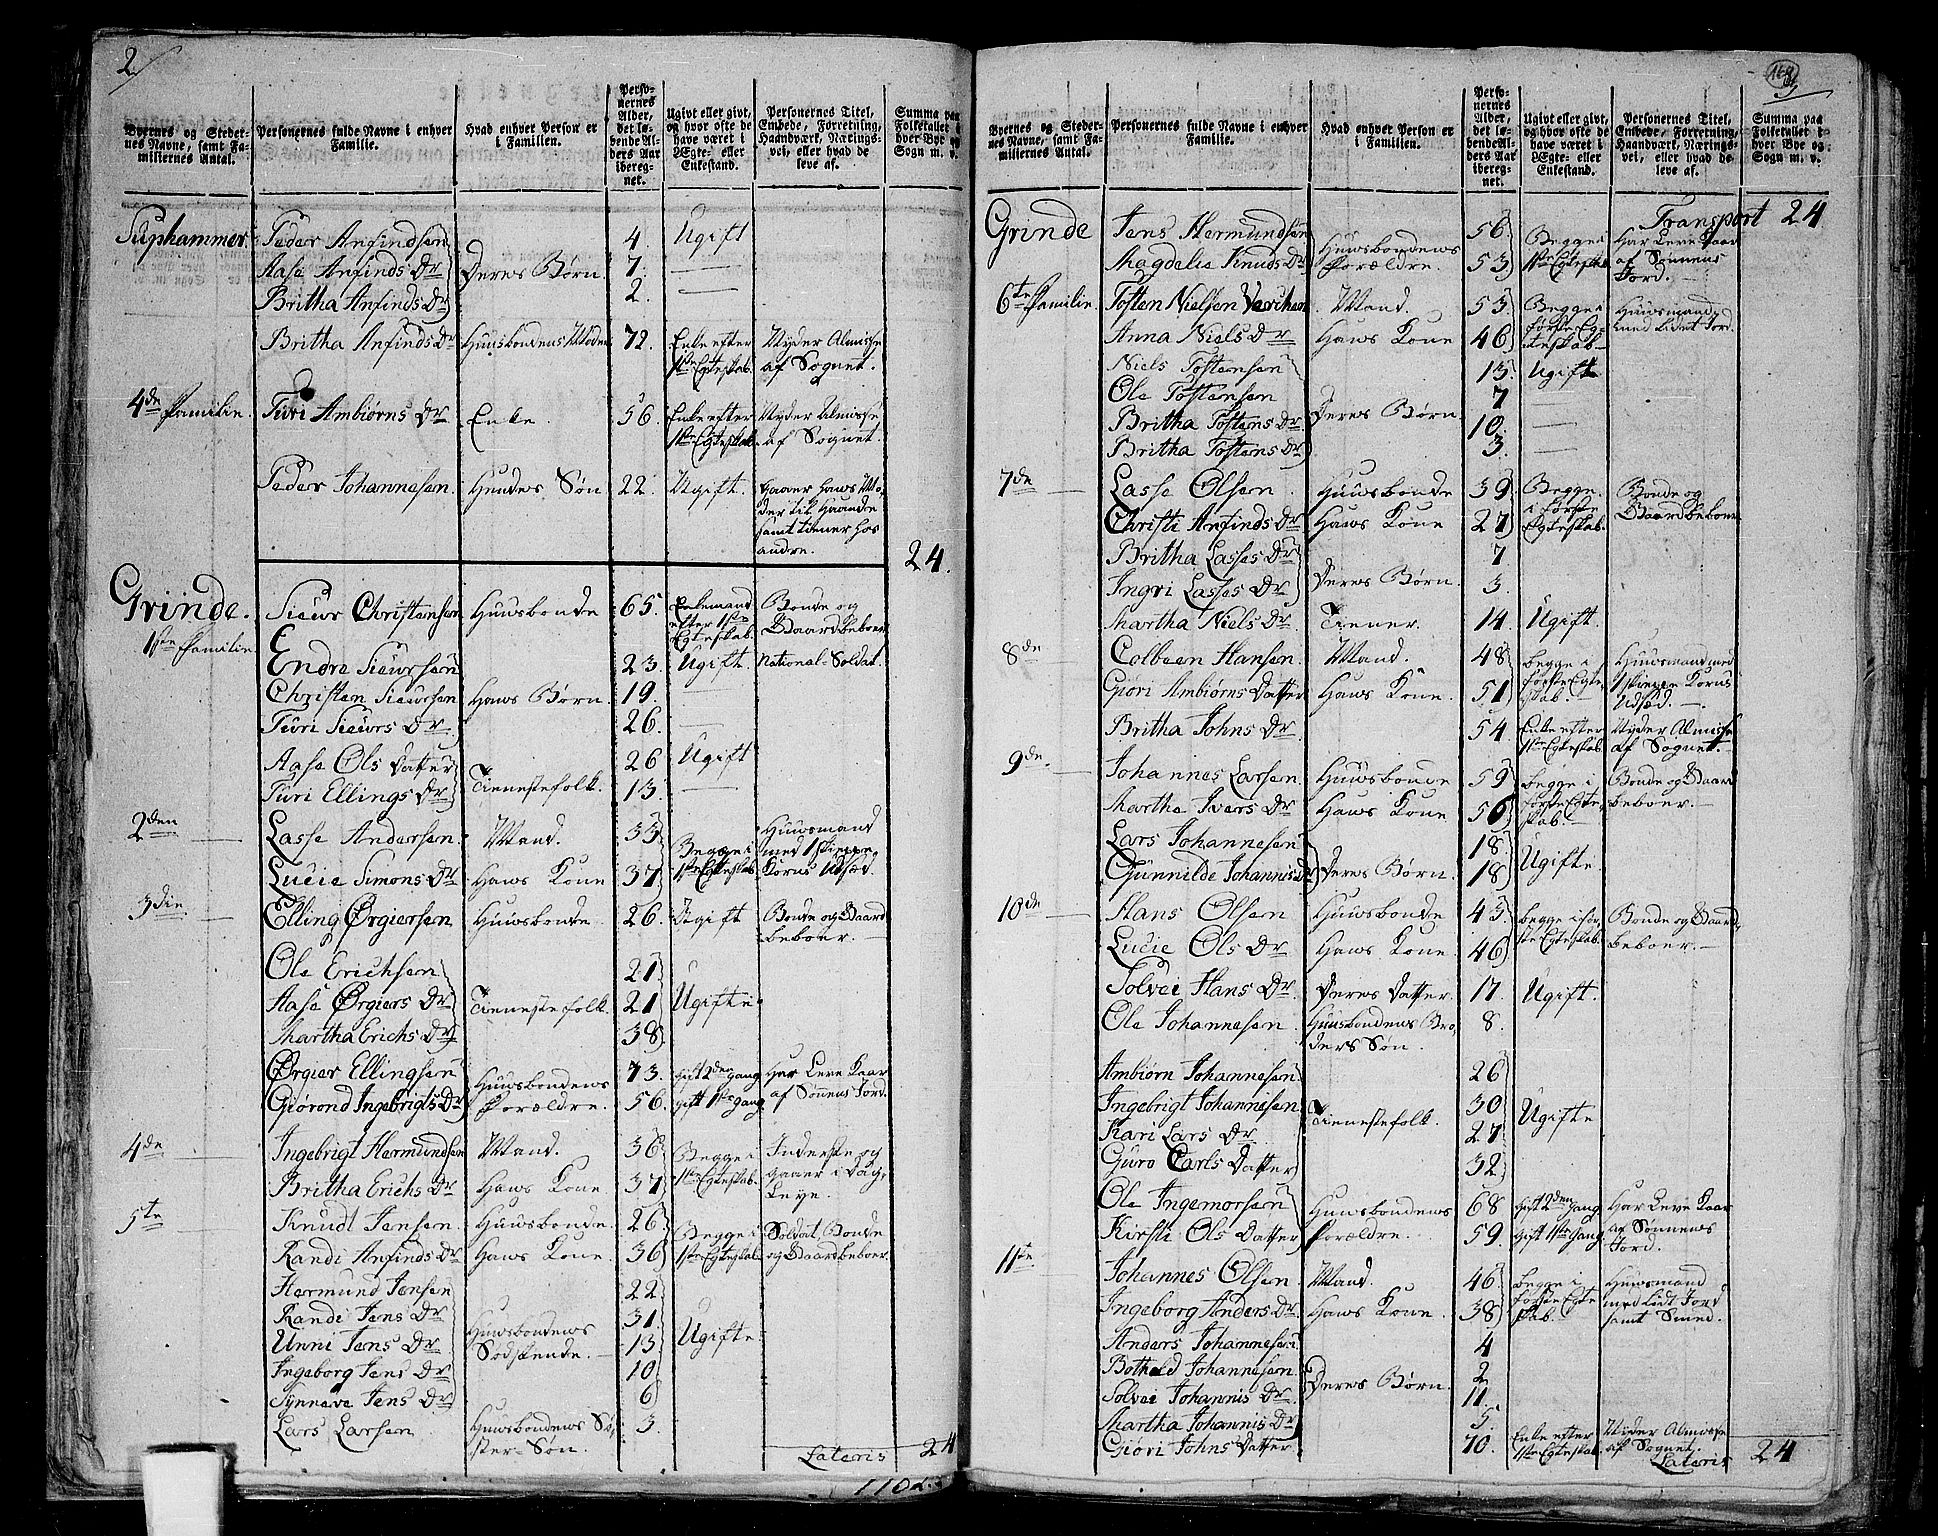 2
Byernes og Steder-
nes Navne, samt Fa-
miliernes Antal.
Personernes fulde Navne i enhver
Familie.
Hvad enhver Person er
i Familien.
Perso-
nernes
Alder,
det lø-
bende Al-
ders Aar
iberegnet.
Ugivt eller givt,
og hvor ofte de
have været i
Egte- eller
Enkestand.
Personernes Titel,
Embede, Forretning,
Haandværk, Nærings-
vei, eller hvad de
leve af.
Summa paa
Folketallet i
hver Bye og
Sogn m. v.
Suphammer. Peder Anfindsen 4. Ugift
Aase Anfinds Dr Deres Børn. 7. —
Britha Anfinds Dr 2. —
Britha Anfinds Dr Huusbondens Moder 72. Enke efter 1ste Egteskab. Nyder Almisse af Sognet.
4de Familie. Turi Ambiørns Dr Enke. 56 Enke efter 1ste Egteskab Nyder Almisse af Sognet.
Peder Johannesen. Hendes Søn 22. Ugift. gaaer hans Mo-
der til Haande
samt tiener hos
andre.
24.
Grinde. Sieur Christensen Huusbonde 65. Enkemand efter 1ste Egteskab. Bonde og Gaardbeboer
1ste Familie Endre Sieursen 23. Ugift. National-Soldat.
Christen Sieursen Hans Børn. 19. —
Turi Sieurs Dr 26. —
Aase Ols Datter Tienestefolk. 26 Ugift
Turi Ellings Dr 13. —
2den — Lasse Andersen Mand. 33 Begge i 1ste Egteskab Huusmand med 1 Skieppe Korns Udsæd.
Lucie Simons Dr Hans Kone 37
3die — Elling Ørgiersen Huusbonde. 26. Ugift Bonde og Gaard-
beboer. —
Ole Erichsen 21
Aase Ørgiers Dr Tienestefolk. 21 Ugifte
Martha Erichs Dr 38
Ørgier Ellingsen Huusbondens Forældre. 73. gift 2den gang Har Leve Kaar af Sønnens Jord.
Giørond Ingebrigts Dr 56. gift 1ste gang
4de — Ingebrigt Hermundsen Mand. 36 Begge i 1ste Egteskab. Inderste og gaaer i Dag-
Leye.
Britha Erichs Dr Hans Kone. 37
5te — Knudt Jensen Huusbonde. 26. Begge i 1ste Egteskab Soldat, Bonde og Gaardbeboer.
Randi Anfinds Dr Hans Kone. 36
Hermund Jensen 22
Randi Jens Dr Huusbondens Sødskende. 31. Ugifte
Unni Jens Dr 13
Ingeborg Jens Dr 10
Synneve Jens Dr 6
Lars Larsen Huusbondens Sø-
ster Søn. 3.
Lateris 24
Byernes og Steder-
nes Navne, samt Fa-
miliernes Antal.
Personernes fulde Navne i enhver
Familie.
Hvad enhver Person er
i Familien.
Perso-
nernes
Alder,
det lø-
bende Al-
ders Aar
iberegnet.
Ugivt eller givt,
og hvor ofte de
have været i
Egte- eller
Enkestand.
Personernes Titel,
Embede, Forretning,
Haandværk, Nærings-
vei, eller hvad de
leve af.
Summa paa
Folketallet i
hver Bye og
Sogn m. v.
Transport 24
Grinde Jens Hermundsen Huusbondens Forældre. 56 Begge i 1ste Egteskab Har Leve Kaar af Sønnens Jord. —
Magdelie Knuds Dr 53
6te Familie. Tosten Nielsen Mand. 53 Begge i første Eg-
teskab — Huusmand med Lidet Jord.
Anna Niels Dr Hans Kone 46
Niels Tostensen 13. Ugift
Ole Tostensen Deres Børn. 7 —
Britha Tostens Dr 10 —
Britha Tostens Dr 3. —
7de — Lasse Olsen Huusbonde 39. Begge i første Egteskab. Bonde og Gaardbeboer
Christi Anfinds Dr Hans Kone 27
Britha Lasses Dr Deres Børn. 7
Ingri Lasses Dr 3.
Martha Niels Dr. Tiener. 14. Ugift.
8de — Colbeen Hansen Mand. 48 begge i første Egte-
skab. — Huusmand med 1 Skieppe Korns Udsæd. —
Giøri Ambiørns Datter Hans Kone. 51
Britha Johns Dr 54. Enke efter 1ste Egteskab. Nyder Almisse af Sognet.
9de. — Johannes Larsen Huusbonde 59 begge i første Egte-
skab. — Bonde og Gaard-
beboer. —
Martha Ivers Dr Hans Kone 50
Lars Johannesen Deres Børn. 18 Ugifte
Gunnilde Johannis Dr 18
10de — Hans Olsen Huusbonde 43. begge i før-
ste Egteskab. Bonde og Gaard-
beboer. —
Lucie Ols Dr Hans Kone 46
Solvei Hans Dr. Deres Datter. 17. Ugift.
Ole Johannesen Huusbondens Bro-
ders Søn. 8.
Ambiørn Johannesen 26
Ingebrigt Johannesen Tienestefolk. 30 Ugifte
Kari Lars Dr 27
Guro Carls Datter 32
Ole Ingemorsen Huusbondens Forældre. 68 gift 2den gang Har Leve Kaar af Sønnens Jord.
Kirsti Ols Datter 59. gift 1ste Gang
11te — Johannes Olsen Mand. 46. begge i første Egte-
skab. Huusmand med Lidt Jord samt Smed.
Ingeborg Anders Dr Hans Kone. 38
Anders Johannesen 4
Bothild Johannesen Deres Børn. 2
Solvei Johannis Dr 11.
Martha Johannis Dr 5
Giøri Johns Datter 70. Enke efter 1ste Egteskab Nyder Almisse af Sognet.
Lateris 24